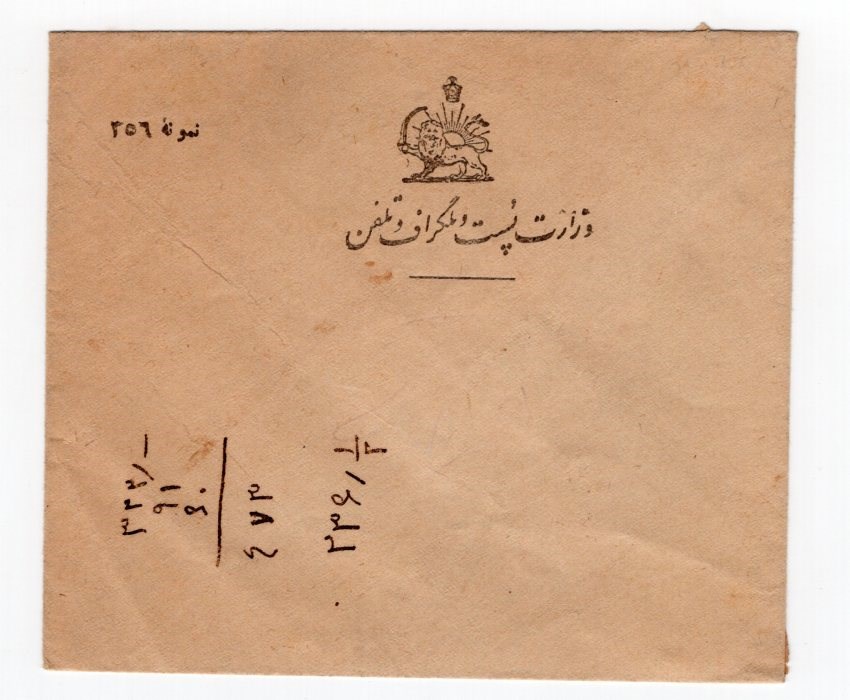 نمونهٔ ۲۵۶
وزارت پست و تلگراف و تلفن
۳۲۲/-
۹۱
۶۰
۴۷۳
۲۳۶/ ۱/۲